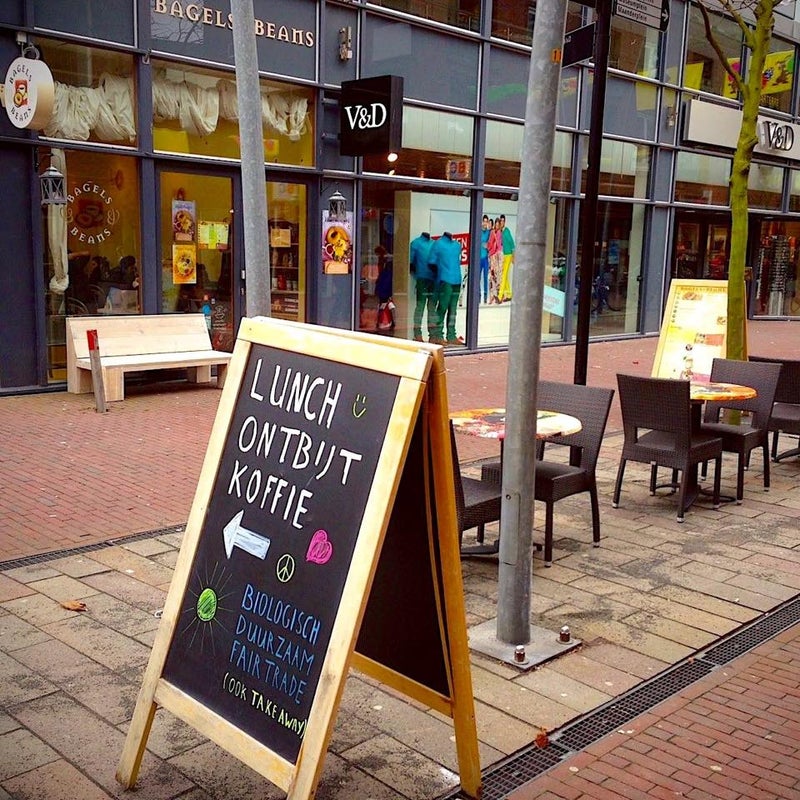 BAGELS BEANS
BAGELS
BEANS
V&D
V&D
BAGELS
BEANS
LUNCH
ONTBIJT
KOFFIE
BIOLOGISCH
DUURZAAM
FAIRTRADE
(OOK TAKE AWAY)